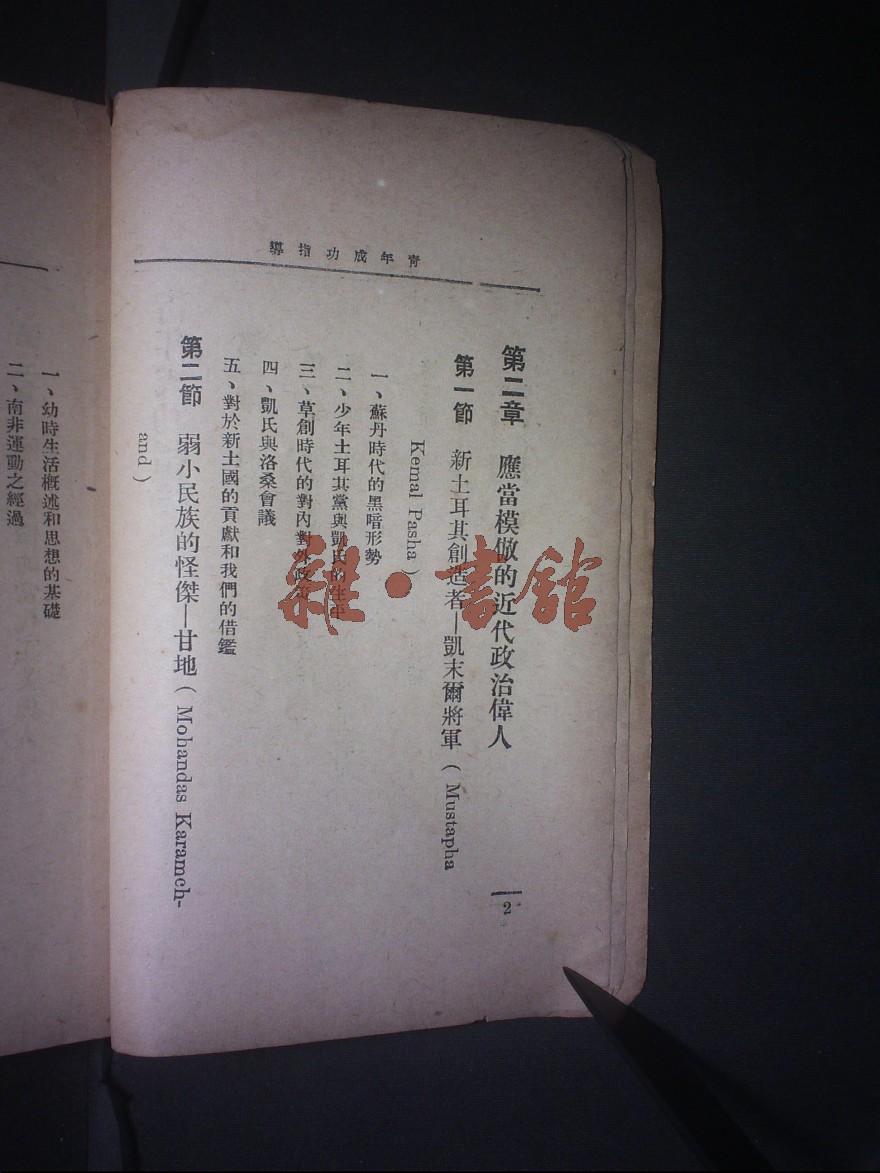 青年成功指導
第二章 應當模倣的近代政治偉人
第一節 新土耳其創造者—凱末爾將軍(Mustapha
Kemal Pasha)
一、蘇丹時代的黑暗形勢
二、少年土耳其黨與凱氏的生平
三、草創時代的對內對外政
四、凱氏與洛桑會議
五、對於新土國的貢獻和我們的借鑑
第二節 弱小民族的怪傑—甘地(Mohandas Karamch-
and)
2
一、幼時生活概述和思想的基礎
二、南非運動之經過
雜·書館